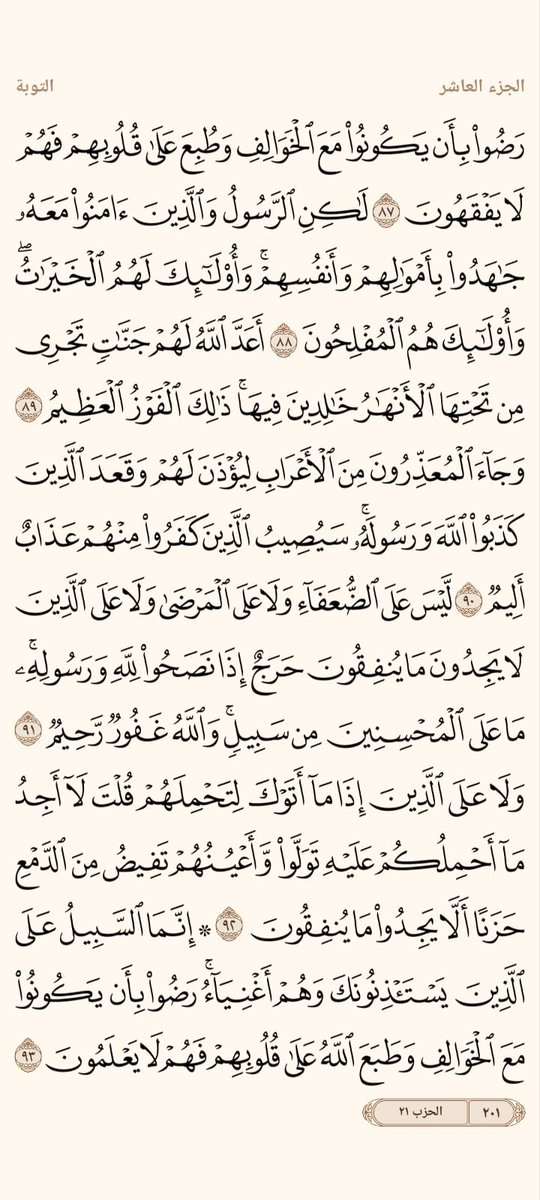 الجزء العاشر
التوبة
رَضُوا۟ بِأَن يَكُونُوا۟ مَعَ ٱلْخَوَالِفِ وَطُبِعَ عَلَىٰ قُلُوبِهِمْ فَهُمْ
لَا يَفْقَهُونَ ٨٧ لَٰكِنِ ٱلرَّسُولُ وَٱلَّذِينَ ءَامَنُوا۟ مَعَهُۥ
جَٰهَدُوا۟ بِأَمْوَٰلِهِمْ وَأَنفُسِهِمْۚ وَأُو۟لَٰٓئِكَ لَهُمُ ٱلْخَيْرَٰتُۖ
وَأُو۟لَٰٓئِكَ هُمُ ٱلْمُفْلِحُونَ ٨٨ أَعَدَّ ٱللَّهُ لَهُمْ جَنَّٰتٍ تَجْرِى
مِن تَحْتِهَا ٱلْأَنْهَٰرُ خَٰلِدِينَ فِيهَاۚ ذَٰلِكَ ٱلْفَوْزُ ٱلْعَظِيمُ ٨٩
وَجَآءَ ٱلْمُعَذِّرُونَ مِنَ ٱلْأَعْرَابِ لِيُؤْذَنَ لَهُمْ وَقَعَدَ ٱلَّذِينَ
كَذَبُوا۟ ٱللَّهَ وَرَسُولَهُۥۚ سَيُصِيبُ ٱلَّذِينَ كَفَرُوا۟ مِنْهُمْ عَذَابٌ
أَلِيمٌ ٩٠ لَّيْسَ عَلَى ٱلضُّعَفَآءِ وَلَا عَلَى ٱلْمَرْضَىٰ وَلَا عَلَى ٱلَّذِينَ
لَا يَجِدُونَ مَا يُنفِقُونَ حَرَجٌ إِذَا نَصَحُوا۟ لِلَّهِ وَرَسُولِهِۦۚ
مَا عَلَى ٱلْمُحْسِنِينَ مِن سَبِيلٍۚ وَٱللَّهُ غَفُورٌ رَّحِيمٌ ٩١
وَلَا عَلَى ٱلَّذِينَ إِذَا مَآ أَتَوْكَ لِتَحْمِلَهُمْ قُلْتَ لَآ أَجِدُ
مَآ أَحْمِلُكُمْ عَلَيْهِ تَوَلَّوا۟ وَّأَعْيُنُهُمْ تَفِيضُ مِنَ ٱلدَّمْعِ
حَزَنًا أَلَّا يَجِدُوا۟ مَا يُنفِقُونَ ٩٢ ۞ إِنَّمَا ٱلسَّبِيلُ عَلَى
ٱلَّذِينَ يَسْتَـْٔذِنُونَكَ وَهُمْ أَغْنِيَآءُۚ رَضُوا۟ بِأَن يَكُونُوا۟
مَعَ ٱلْخَوَالِفِ وَطَبَعَ ٱللَّهُ عَلَىٰ قُلُوبِهِمْ فَهُمْ لَا يَعْلَمُونَ ٩٣
٢٠١ الحزب ٢١